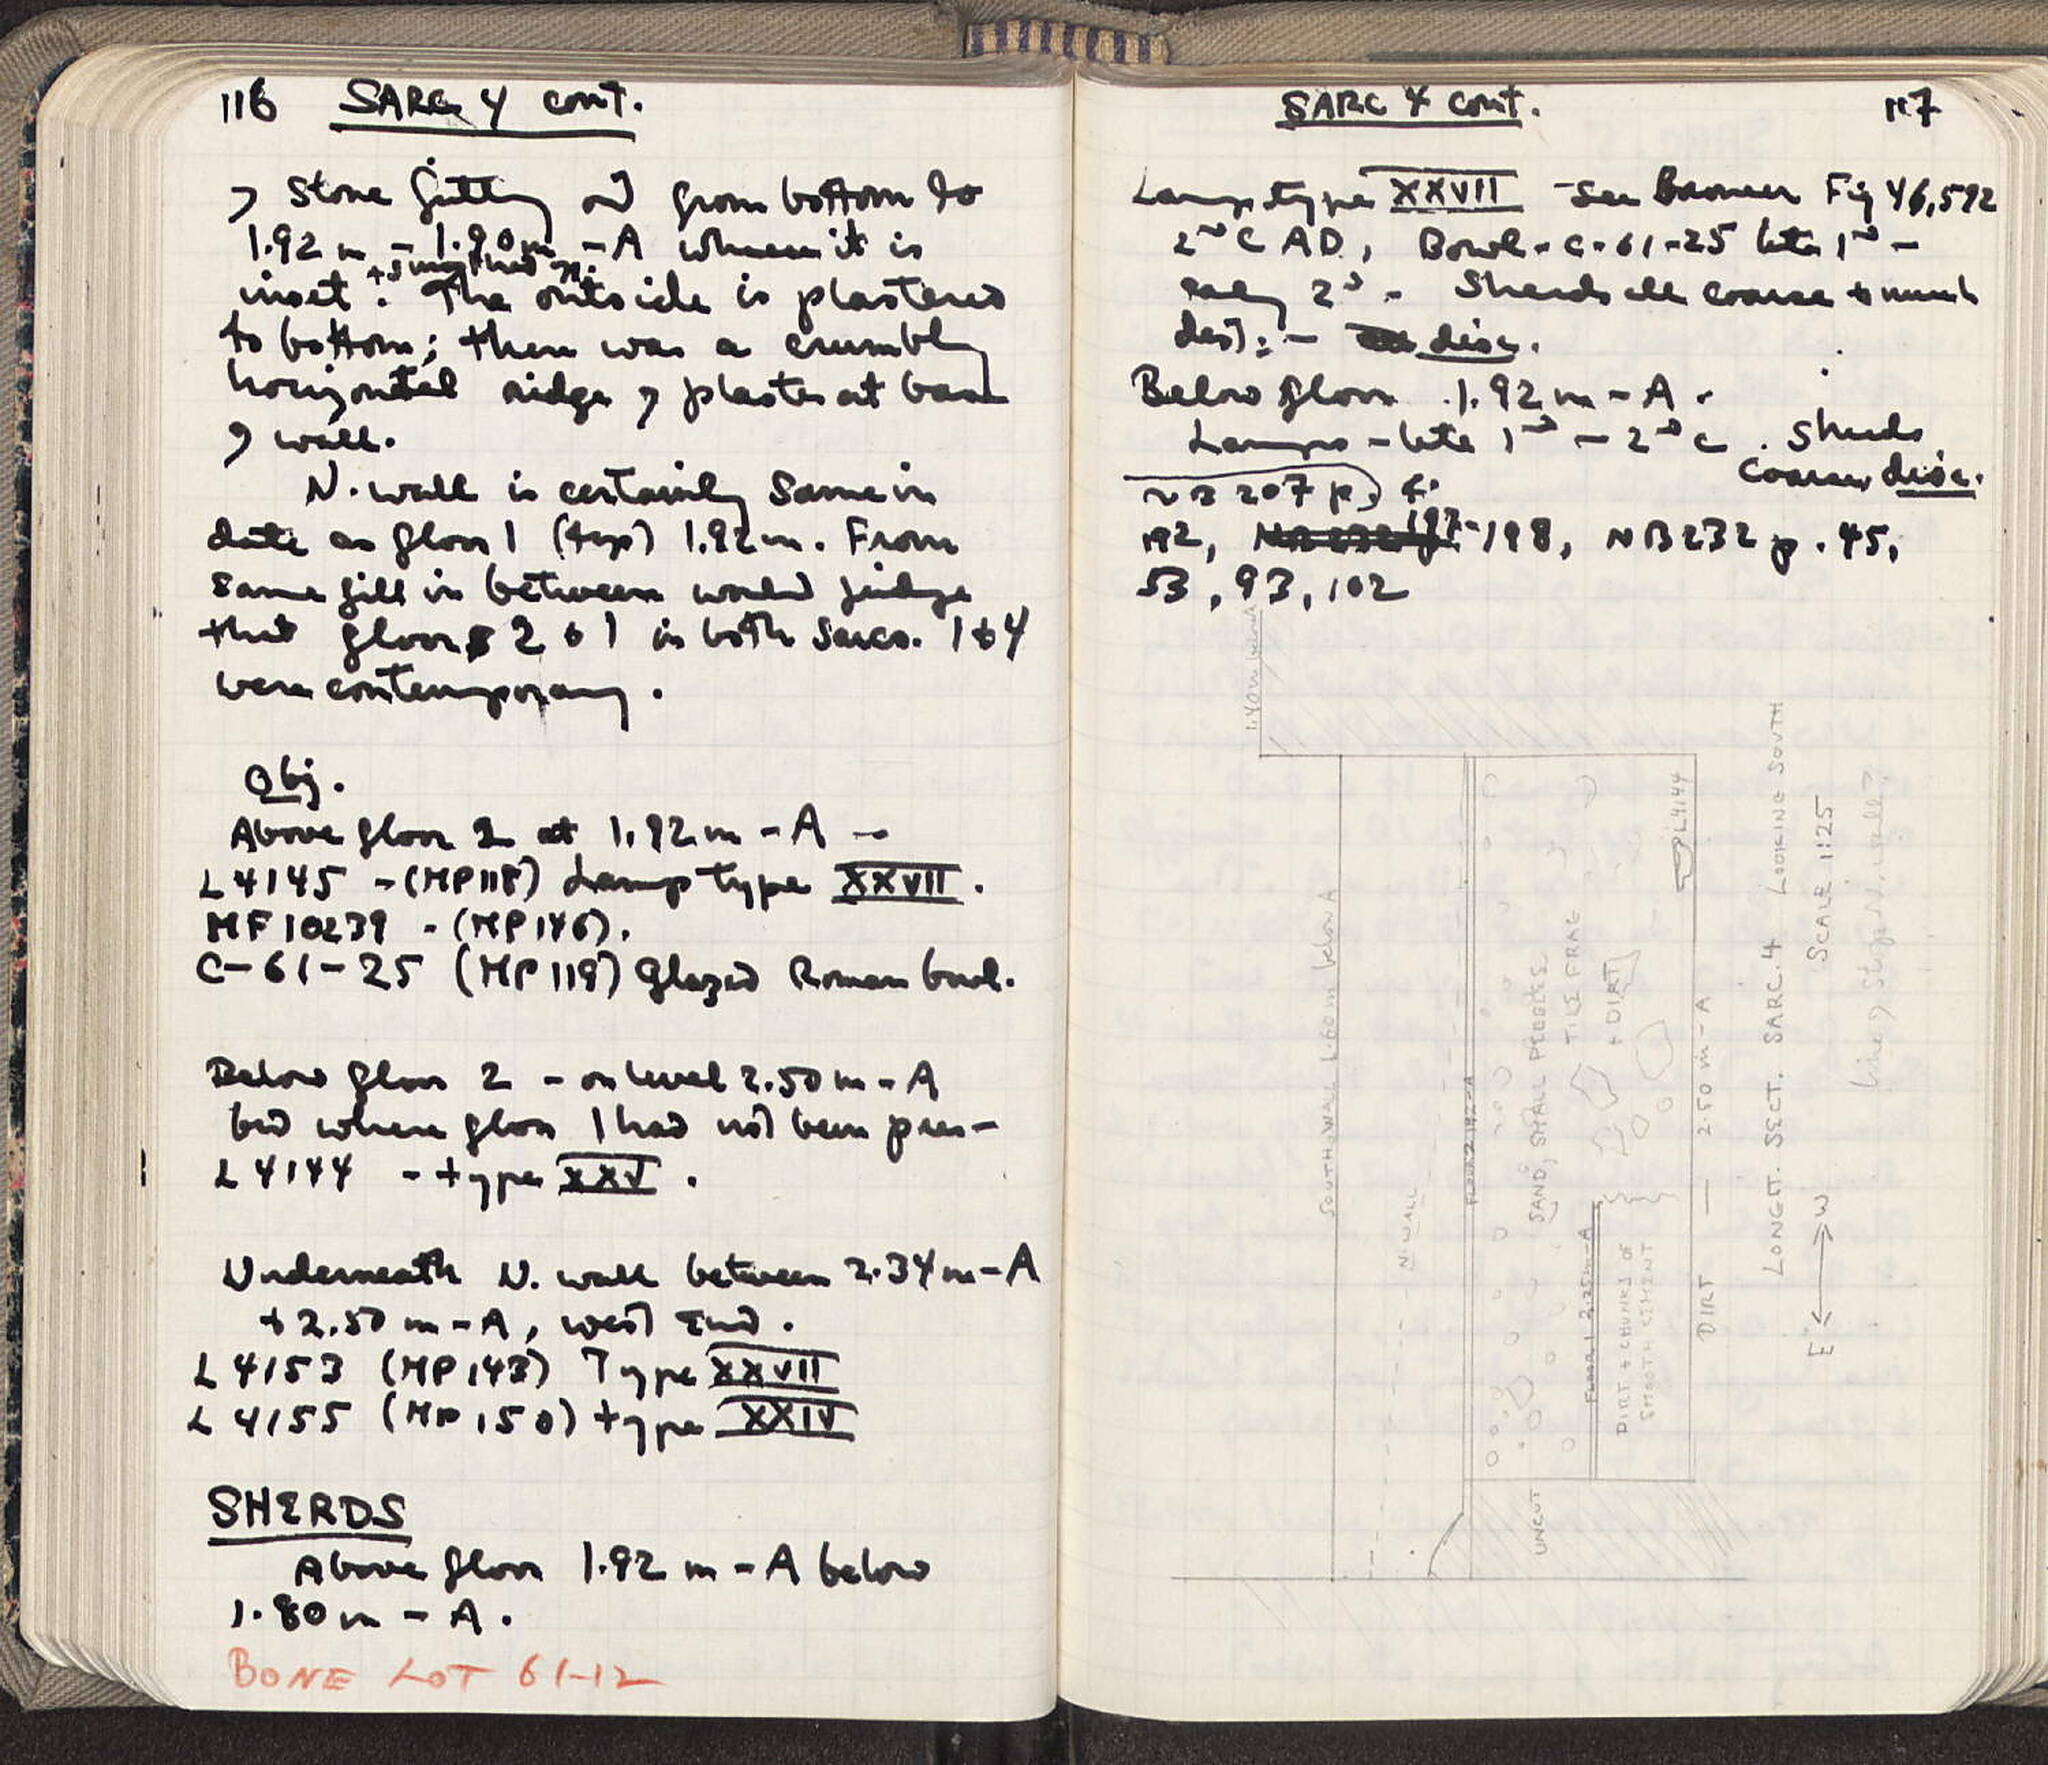 116 SARC 4 cont.
of stone jutting out from bottom to
1.92 m - 1.90m - A where it is
+ smoothed off.
inset. The outside is plastered
to bottom; there was a crumbly
horizontal ridge of plaster at base
of wall.
N. wall is certainly same in
date as floor 1 (top) 1.92m. From
same fill in between would judge
that floors 2 & 1 in both Sarcs. 1 & 4
were contemporary.
Obj.
Above floor 2 at 1.92m - A -
L 4145 - (MP118) Lamp type XXVII.
MF 10239 - (MP146).
C-61-25 (MP119) Glazed Roman bowl.
Below floor 2 - on level 2.50m - A
but where floor 1 had not been pres-
L 4144 - type XXV.
Underneath N. wall between 2.34m-A
+ 2.50m-A, west end.
L 4153 (MP143) Type XXVII
L 4155 (MP150) type XXIV
SHERDS
Above floor 1.92 m - A below
1.80m - A.
BONE LOT 61-12
SARC 4 cont. 117
Lamp type XXVII - See Broneer Fig 46, 592
2nd C AD, Bowl - C-61-25 late 1st -
early 2nd - Sherds all coarse & much
dest: - disc.
Below floor 1.92m - A.
Lamps - late 1st - 2nd c. Sherds
coarse, disc.
NB 207 p.
192, 197-198, NB232 p. 45,
53, 93, 102
1.40m below A
SOUTH WALL 1.60m below A
N. WALL
FLOOR 2 1.92-A
SAND, SMALL PEBBLES
TILE FRAG
+ DIRT
L4144
FLOOR 1 2.25m-A
DIRT + CHUNKS OF
SMOOTH CEMENT
UNCUT
DIRT — 2.50 m - A
LONGIT. SECT. SARC. 4 LOOKING SOUTH
SCALE 1:25
E W
line of stop N. wall?